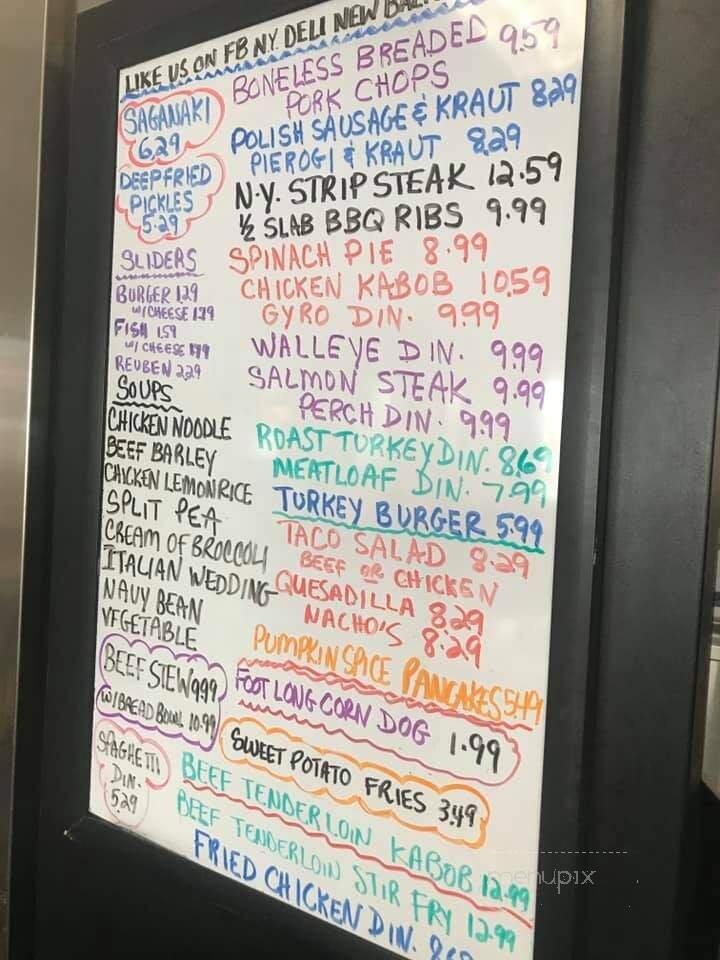 LIKE US ON FB N.Y. DELI NEW
SAGANAKI
6.29
DEEP FRIED
PICKLES
5.29
SLIDERS
BURGER 1.29
W/CHEESE
FISH 1.59
W/ CHEESE
REUBEN 2.29
SOUPS
CHICKEN NOODLE
BEEF BARLEY
CHICKEN LEMON RICE
SPLIT PEA
CREAM OF BROCCOLI
ITALIAN WEDDING
NAVY BEAN
VEGETABLE
BEEF STEW 9.99
W/BREAD BOWL 10.99
SPAGHETTI
DIN.
5.29
BONELESS BREADED 9.59
PORK CHOPS
POLISH SAUSAGE & KRAUT 8.29
PIEROGI & KRAUT 8.29
N.Y. STRIP STEAK 12.59
½ SLAB BBQ RIBS 9.99
SPINACH PIE 8.99
CHICKEN KABOB 10.59
GYRO DIN. 9.99
WALLEYE DIN. 9.99
SALMON STEAK 9.99
PERCH DIN. 9.99
ROAST TURKEY DIN. 8.69
MEATLOAF DIN. 7.99
TURKEY BURGER 5.99
TACO SALAD 8.29
BEEF OR CHICKEN
QUESADILLA 8.29
NACHO'S 8.29
PUMPKIN SPICE PANCAKES 5.49
FOOT LONG CORN DOG 1.99
SWEET POTATO FRIES 3.49
BEEF TENDERLOIN KABOB 12.99
BEEF TENDERLOIN STIR FRY 12.99
FRIED CHICKEN DIN.
menupix